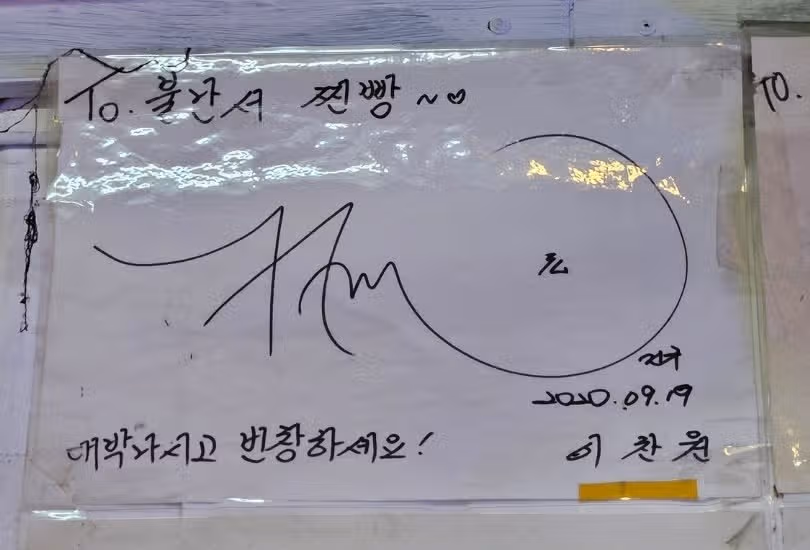 To. 불란서 찐빵 ~♡
2020.09.19
대박나시고 번창하세요!
이찬원
TO.